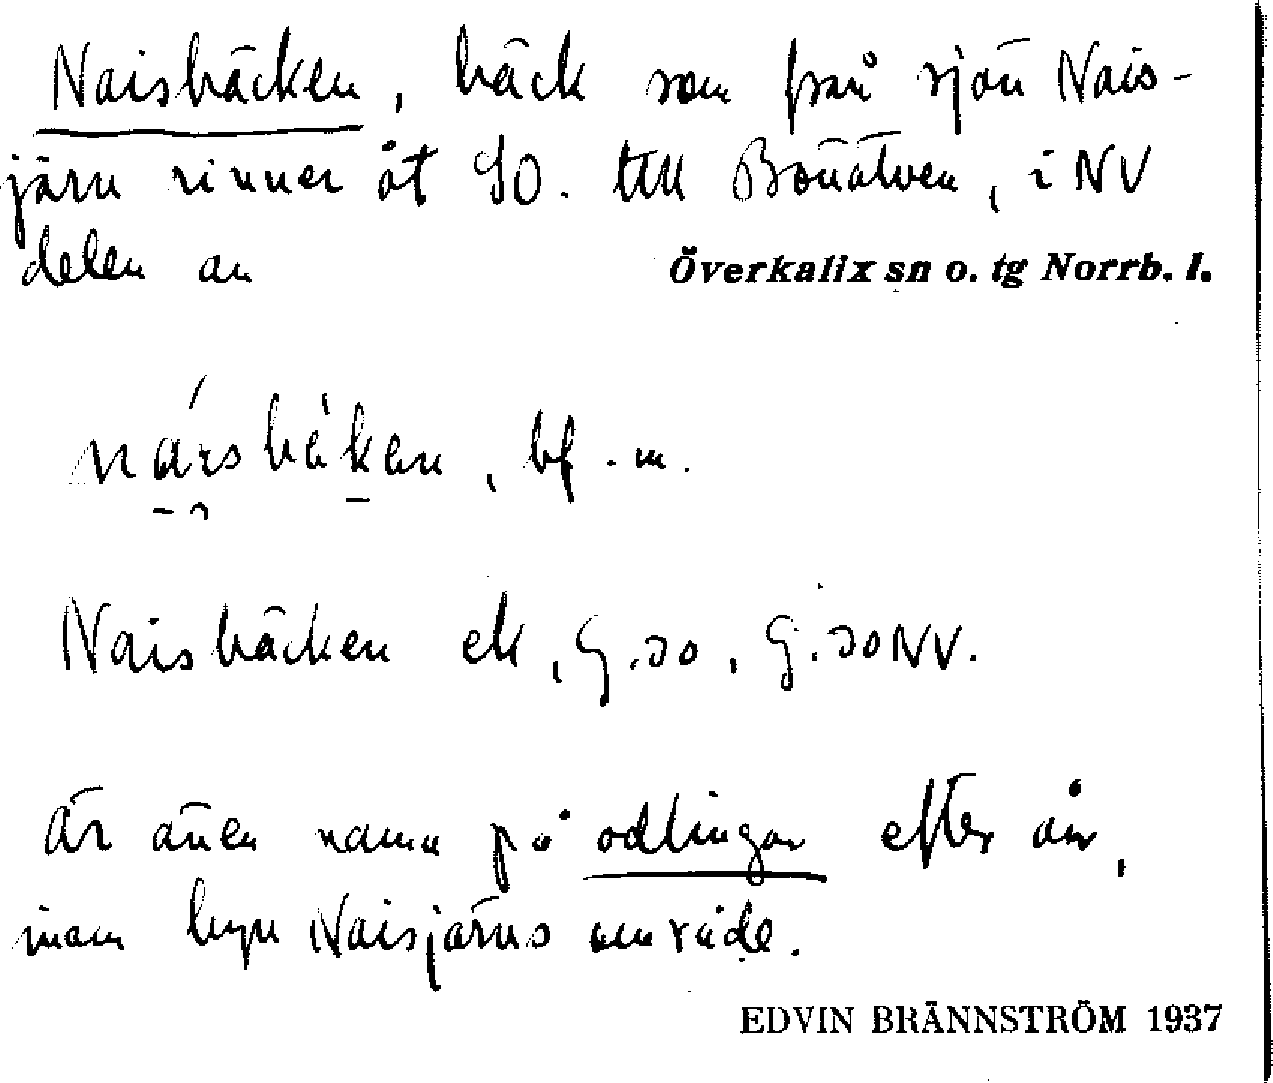 Naisbäcken, bäck som från sjön Nais-
järn rinner åt SO. till Bönälven, i NV
delen av Överkalix sn o. tg Norrb. l.
bf. m.
Naisbäcken ek, G.SO, G.SONV.
Är även namn på odlingar efter ån,
inom byn Naisjärvs område.
EDVIN BRÄNNSTRÖM 1937